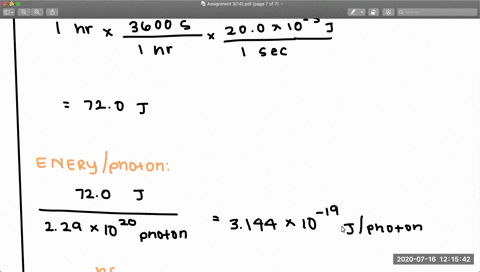 Assignment 3(74).pdf (page 7 of 7)
1 hr × 3600 s / 1 hr × 20.0 × 10⁻³ J / 1 sec
= 72.0 J
ENERY/photon:
72.0 J / 2.29 × 10²⁰ photon = 3.144 × 10⁻¹⁹ J/photon
2020-07-16 12:15:42